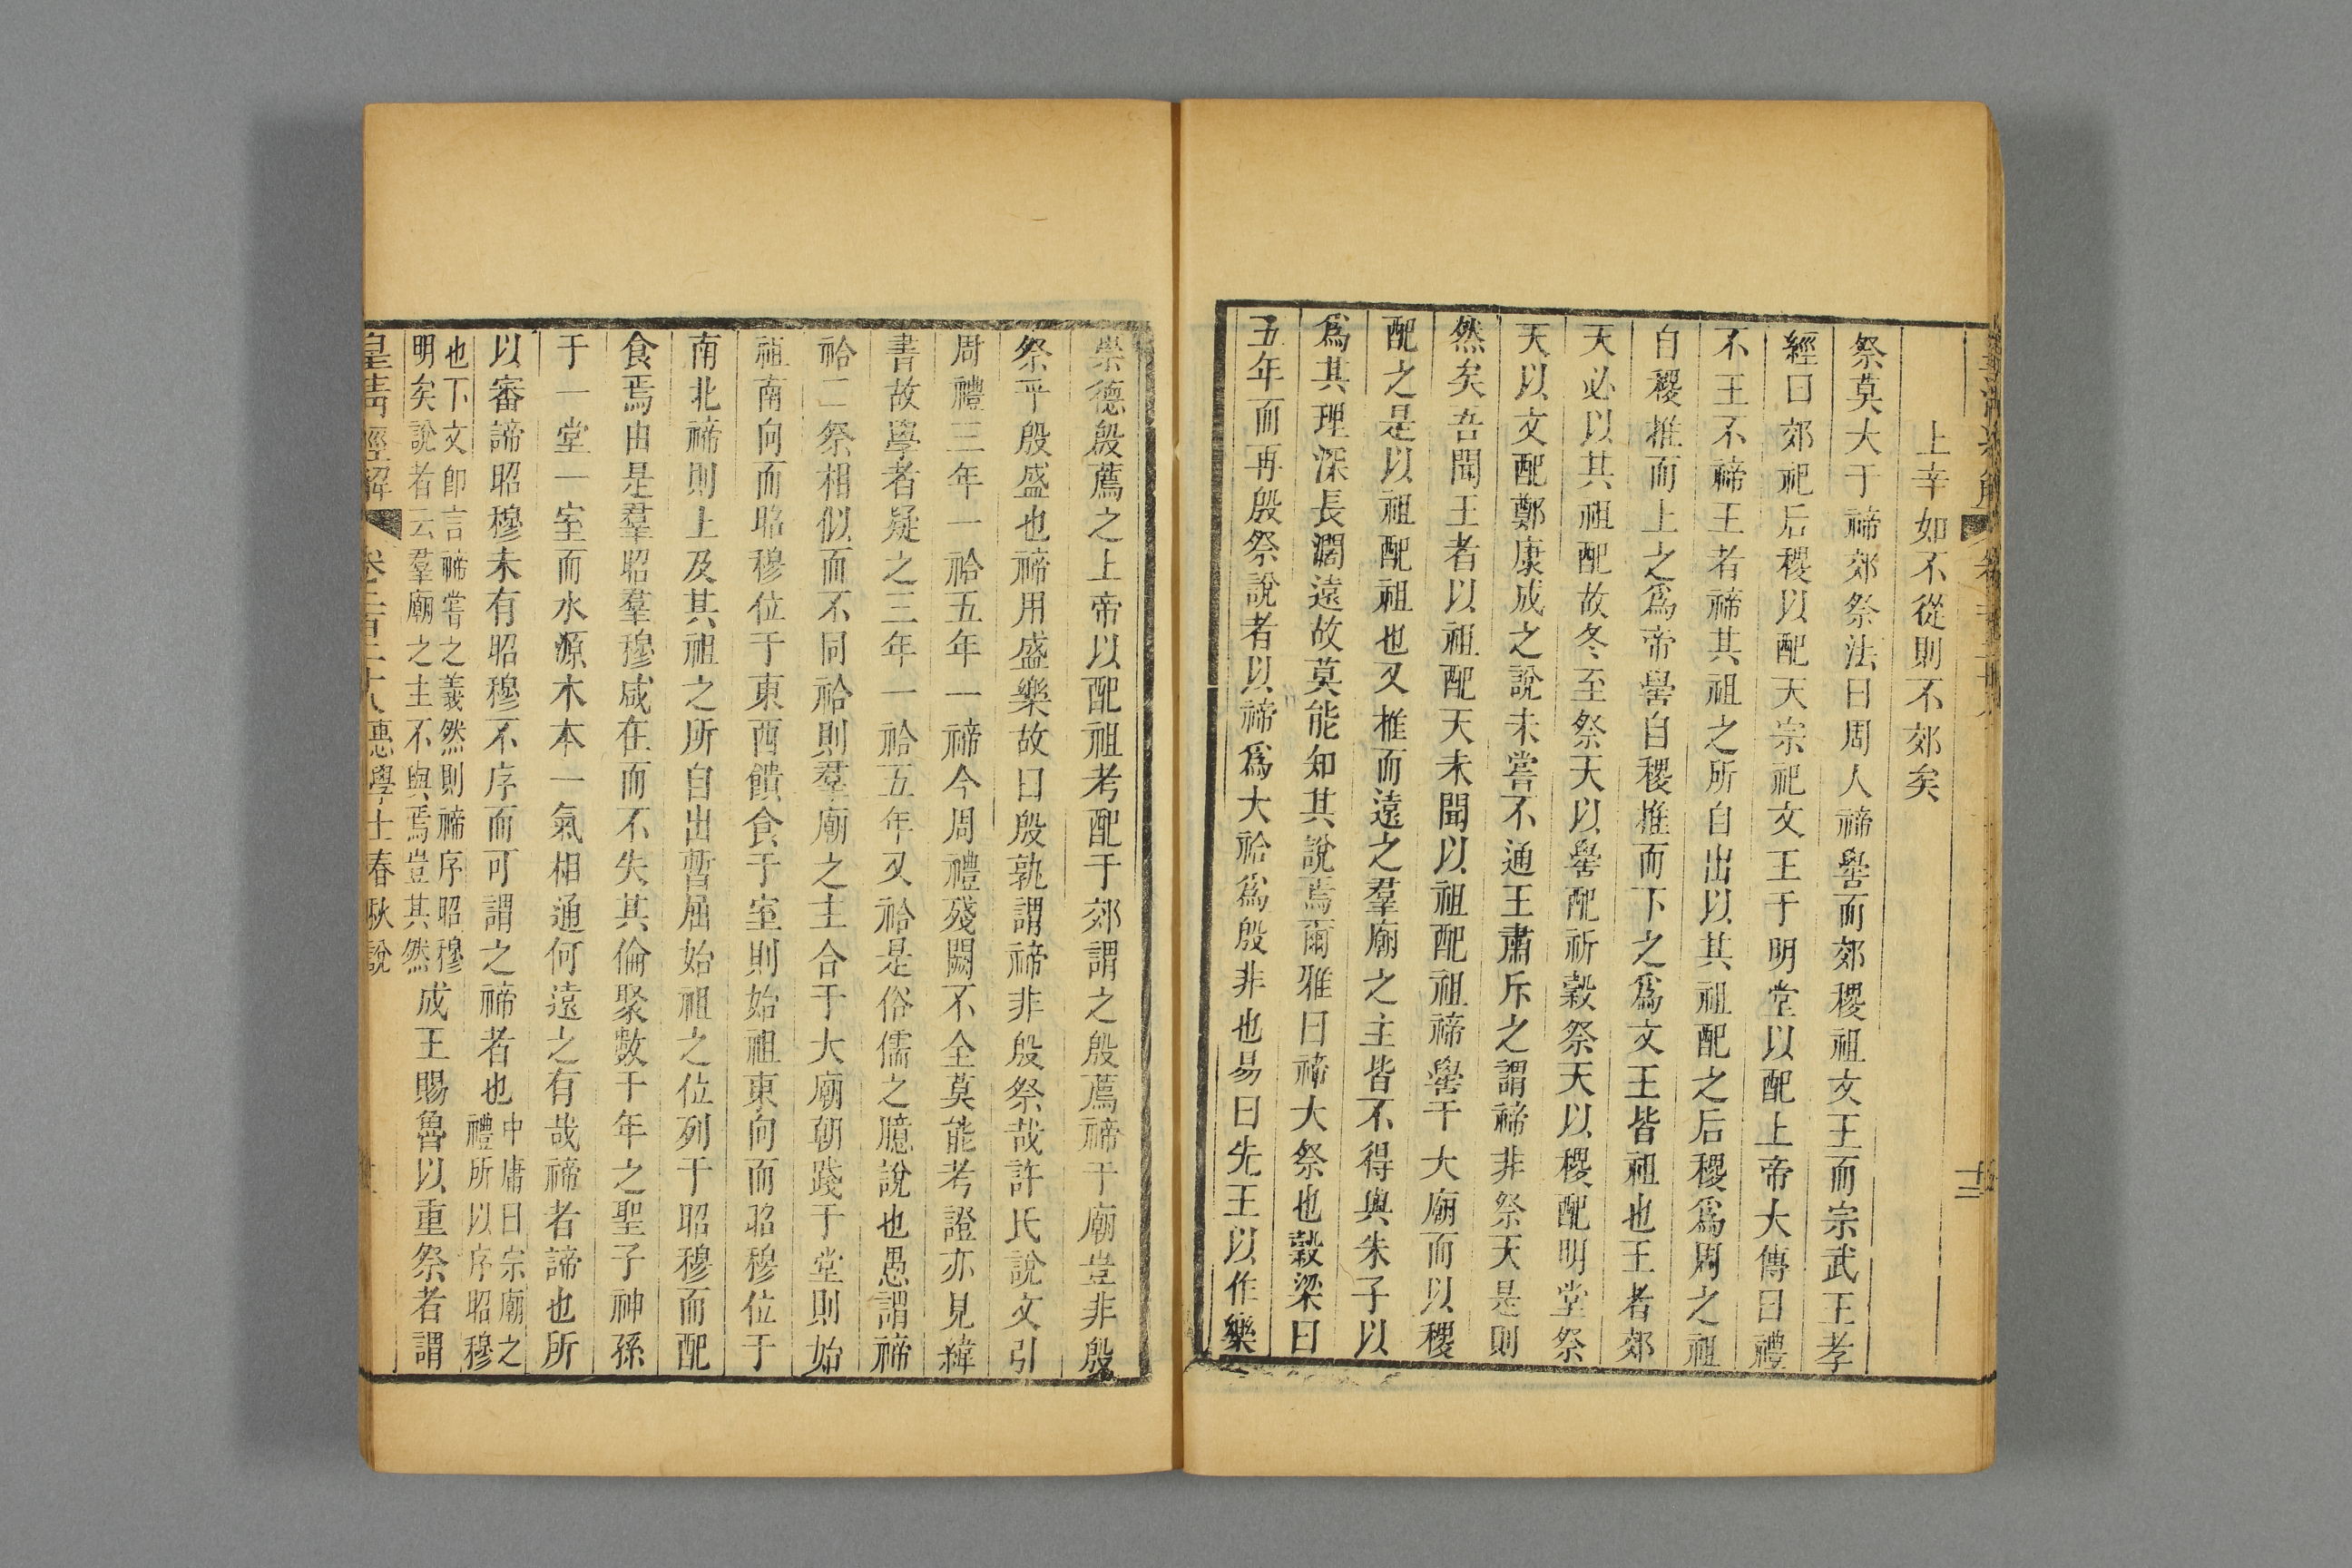 上辛如不從則不郊矣
祭莫大于禘郊祭法曰周人禘嚳而郊稷祖文王而宗武王孝
經曰郊祀后稷以配天宗祀文王于明堂以配上帝大傳曰禮
不王不禘王者禘其祖之所自出以其祖配之后稷爲周之祖
自稷推而上之爲帝嚳自稷推而下之爲文王皆祖也王者郊
天必以其祖配故冬至祭天以嚳配祈榖祭天以稷配明堂祭
天以文配鄭康成之說未嘗不通王肅斥之謂禘非祭天是則
然矣吾聞王者以祖配天未聞以祖配祖禘嚳于大廟而以稷
配之是以祖配祖也又推而遠之羣廟之主皆不得與朱子以
爲其理深長濶遠故莫能知其說焉爾雅曰禘大祭也榖梁曰
五年而再殷祭說者以禘爲大祫爲殷非也易曰先王以作樂
崇德殷薦之上帝以配祖考配于郊謂之殷薦禘于廟豈非殷
祭乎殷盛也禘用盛樂故曰殷孰謂禘非殷祭哉許氏說文引
周禮三年一祫五年一禘今周禮殘闕不全莫能考證亦見緯
書故學者疑之三年一祫五年又祫是俗儒之臆說也愚謂禘
祫二祭相似而不同祫則羣廟之主合于大廟朝踐于堂則始
祖南向而昭穆位于東西饋食于室則始祖東向而昭穆位于
南北禘則上及其祖之所自出暫屈始祖之位列于昭穆而配
食焉由是羣昭羣穆咸在而不失其倫聚數千年之聖子神孫
于一堂一室而水源木本一氣相通何遠之有哉禘者諦也所
以審諦昭穆未有昭穆不序而可謂之禘者也中庸曰宗廟之
禮所以序昭穆
也下文卽言禘嘗之義然則禘序昭穆
明矣說者云羣廟之主不與焉豈其然成王賜魯以重祭者謂
皇淸經解 卷二百二十八惠學士春秋說